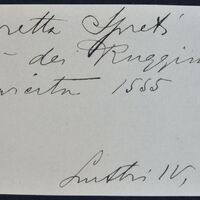 retta Spreti
dei Ruggin
1555
Lustri IV,